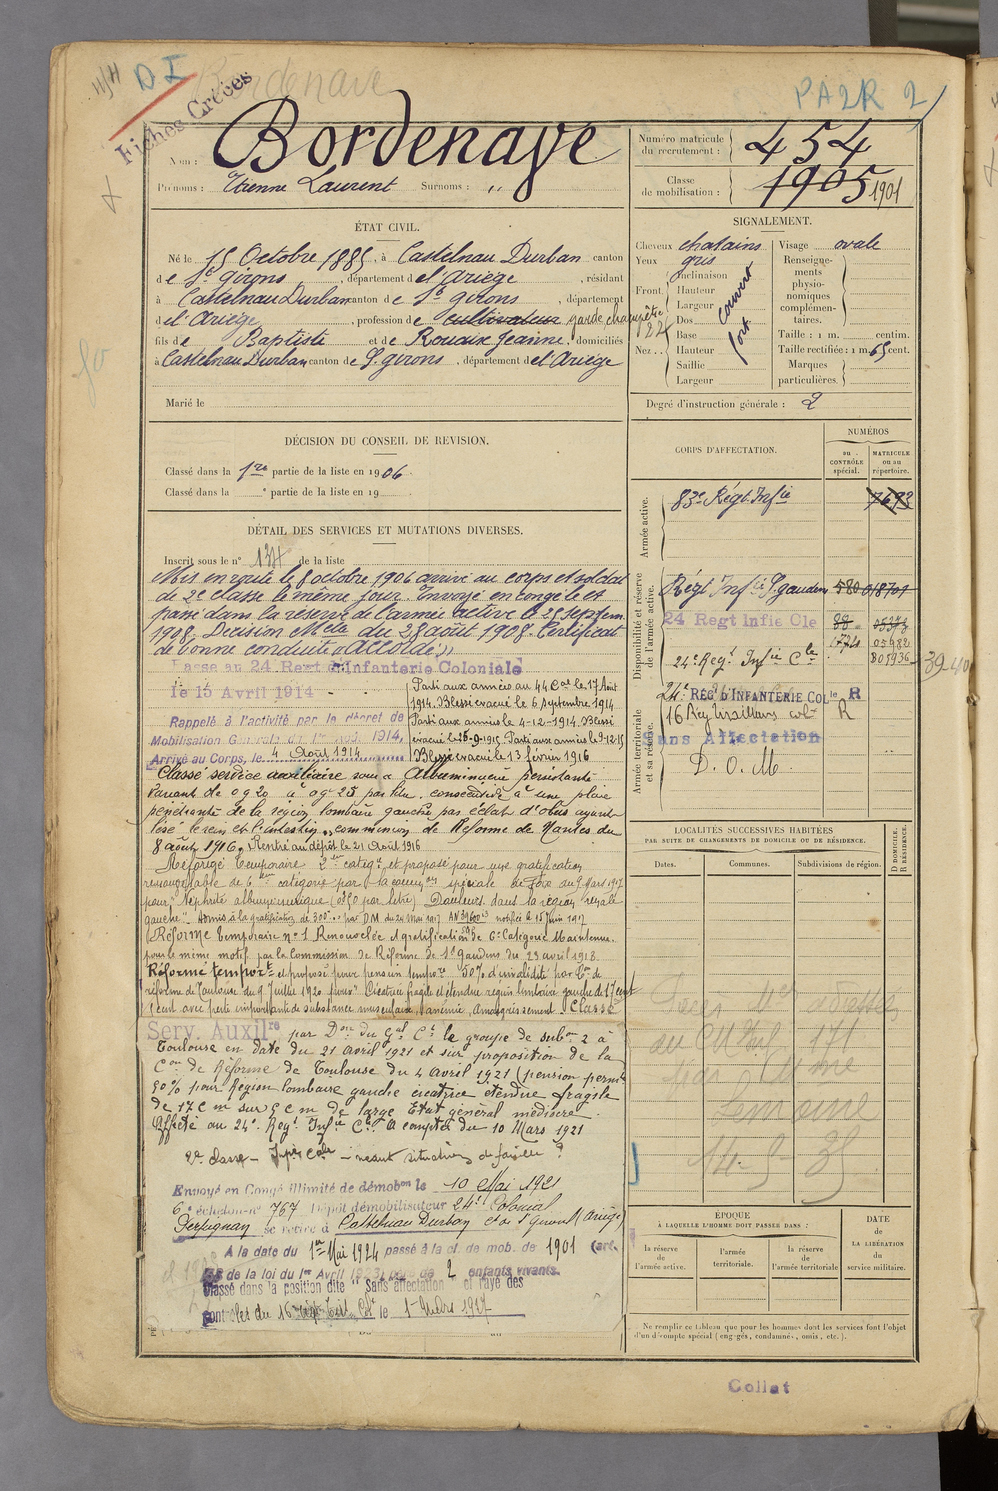 DI
Bordenave
PA2R 2
Fiches Créées
Nom : Bordenave
Prénoms : Etienne Laurent Surnoms : ,,
Numéro matricule du recrutement : 454
Classe de mobilisation : 1905 1901
ÉTAT CIVIL.
Né le 15 Octobre 1885, à Castelnau Durban, canton
de St Girons, département de l'Ariège, résidant
à Castelnau Durban canton de St Girons, département
de l'Ariège, profession de cultivateur garde champêtre
fils de Baptiste et de Rouaix Jeanne, domiciliés
à Castelnau Durban canton de St Girons, département de l'Ariège
Marié le
SIGNALEMENT.
Cheveux chatains
Yeux gris
Front
Inclinaison
Hauteur
Largeur
couvert
Nez
Dos
Base
Hauteur
Saillie
Largeur
fort
Visage ovale
Renseignements physionomiques complémentaires.
Taille : 1 m. centim.
Taille rectifiée : 1 m. 65 cent.
Marques particulières.
Degré d'instruction générale : 2
DÉCISION DU CONSEIL DE REVISION.
Classé dans la 1re partie de la liste en 1906.
Classé dans la ° partie de la liste en 19
DÉTAIL DES SERVICES ET MUTATIONS DIVERSES.
Inscrit sous le n° 134 de la liste
Mis en route le 8 octobre 1906 arrivé au corps et soldat
de 2e classe le même jour. Envoyé en congé le et
passé dans la réserve de l'armée active le 25 septem
1908. Décision Melle du 28 août 1908. Certificat
de bonne conduite "Accordé"
Passé au 24 Regt d'Infanterie Coloniale
le 15 Avril 1914
Rappelé à l'activité par le décret de
Mobilisation Générale du 1er Aout 1914,
Arrivé au Corps, le 4 Août 1914
Parti aux armées au 44 Cal le 17 Août
1914. Blessé évacué le 6 septembre 1914
Parti aux armées le 4-12-1914. Blessé
évacué le 25-9-1915 Parti aux armées le 9-12-15
Blessé évacué le 13 février 1916
Classé service auxiliaire pour Albuminurie persistante
variant de 0g20 à 0gr 25 par litre, consécutive à une plaie
pénétrante de la région lombaire gauche par éclat d'obus ayant
lésé le rein et l'intestin, commission de Réforme de Nantes du
8 août 1916. Rentré au dépôt le 21 Août 1916
Réformé Temporaire 2e catégie et proposé pour une gratification
renouvelable de 6e catégorie par la common spéciale de Foix du 9 Mars 1917
pour "Néphrite albuminurique (0g50 par litre) Douleurs dans la région rénale
gauche". Admis à la gratification de 300f par DM du 24 Mai 1917 notifiée le 15 Juin 1917
Réformé temporaire n° 1 Renouvelée et gratification de 6e Catégorie Maintenue
pour le même motif par la Commission de Réforme de St Gaudens du 23 avril 1918.
Réforme tempore et proposé pour pension tempore 50% d'invalidité par Con de
réforme de Toulouse du 9 Juillet 1920 pour "Cicatrice fragile et étendue région lombaire gauche de 17 cent
5 cent avec perte importante de substance musculaire, anémie, amaigrissement. Classé
Serv. Auxilre par Don du Gal Ct le groupe de subon 2 à
Toulouse en date du 21 avril 1921 et sur proposition de la
Con de Réforme de Toulouse du 4 Avril 1921 (pension perm
50% pour Région lombaire gauche cicatrice étendue fragile
de 17 c m sur 5 c m de large Etat général médiocre
Affecté au 24e Regt Infie Cle à compter du 10 Mars 1921
2e classe
Envoyé en Congé illimité de démobon le 10 Mai 1921
6e échelon n° 767 Dépôt démobilisateur 24e Colonial
Perpignan se retire à Castelnau Durban ct de St Girons (Ariège)
A la date du 1er Mai 1924 passé à la cl. de mob. de 1901 (art.
58 de la loi du 1er Avril 1923) père de 2 enfants vivants.
Classé dans la position dite "sans affectation" et rayé des
contrôles du 16e Régt Tirl. Col le 1er Mars 1927
CORPS D'AFFECTATION.
NUMÉROS
au CONTRÔLE spécial.
MATRICULE ou au répertoire.
Armée active.
83e Régt Infie 7693
Disponibilité et réserve de l'armée active.
Régt Infie St Gaudens 580 018701
24 Regt Infie Cle 88 05373
1724 05982
24e Regt Infie Cle 805936
39-40
Armée territoriale et sa réserve.
24e RÉG. D'INFANTERIE COLle R
16 Reg Tirailleurs colx R
Sans Affectation
D. O. M.
LOCALITÉS SUCCESSIVES HABITÉES
PAR SUITE DE CHANGEMENTS DE DOMICILE OU DE RÉSIDENCE.
Dates.
Communes.
Subdivisions de région.
D DOMICILE. R RÉSIDENCE.
171
par
Lemoine
14-5-35
ÉPOQUE
À LAQUELLE L'HOMME DOIT PASSER DANS :
la réserve de l'armée active.
l'armée territoriale.
la réserve de l'armée territoriale
DATE de LA LIBÉRATION du service militaire.
Ne remplir ce tableau que pour les hommes dont les services font l'objet
d'un décompte spécial (engagés, condamnés, omis, etc.).
Collat